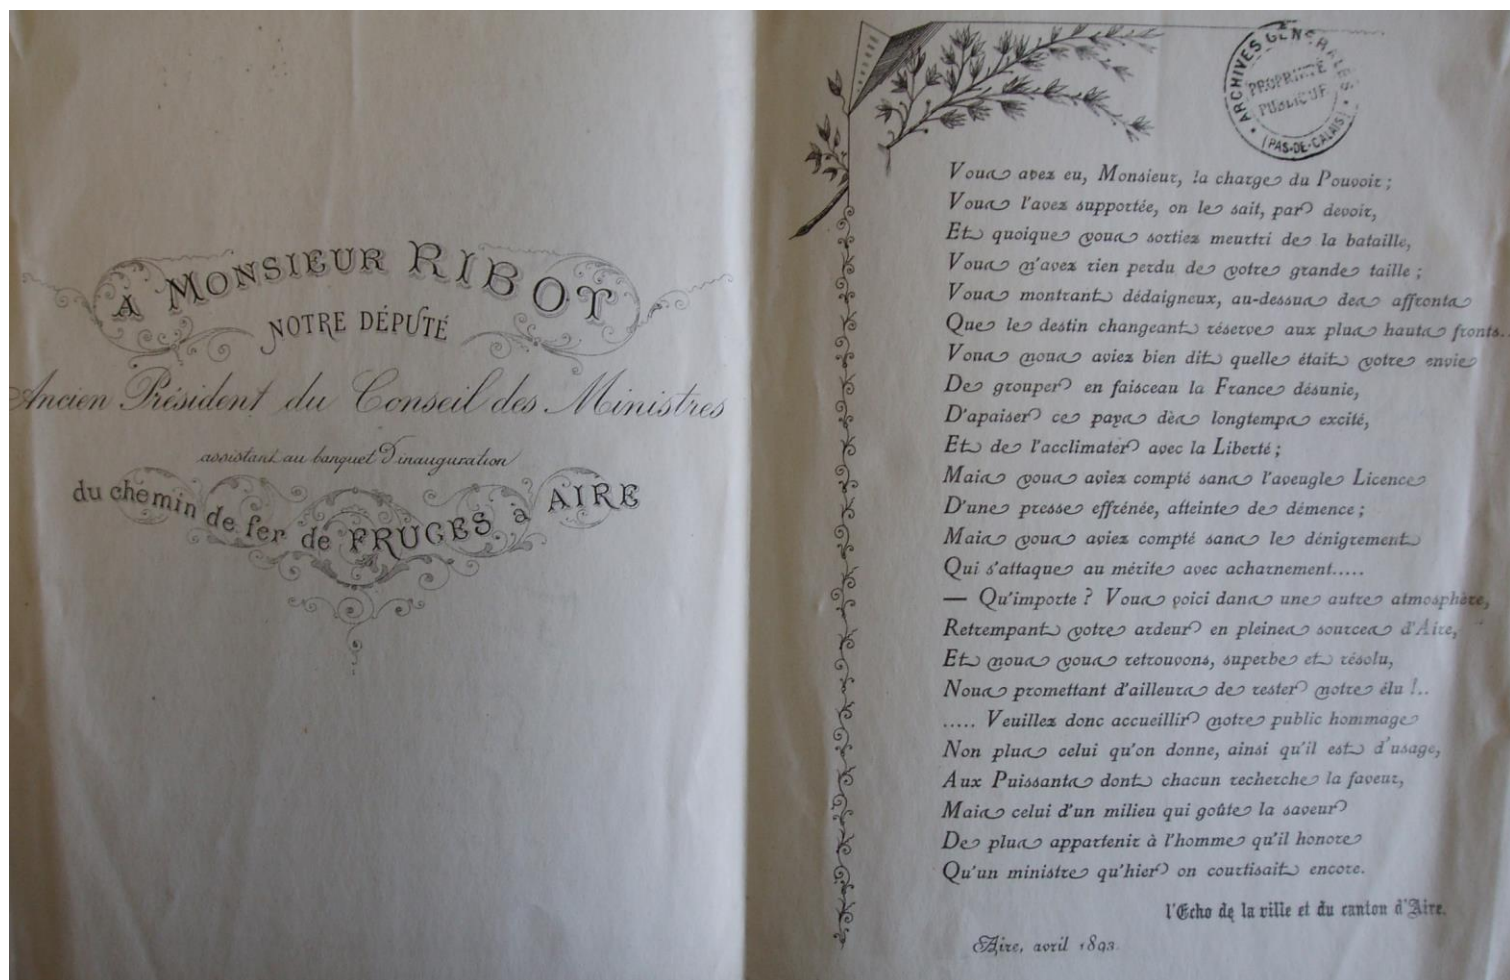 À MONSIEUR RIBOT
NOTRE DÉPUTÉ
Ancien Président du Conseil des Ministres
assistant au banquet d'inauguration
du chemin de fer de FRUGES à AIRE
ARCHIVES GÉNÉRALES
PROPRIÉTÉ
PUBLIQUE
(PAS-DE-CALAIS)
Vous avez eu, Monsieur, la charge du Pouvoir ;
Vous l'avez supportée, on le sait, par devoir,
Et quoique vous sortiez meurtri de la bataille,
Vous n'avez rien perdu de votre grande taille ;
Vous montrant dédaigneux, au-dessus des affronts
Que le destin changeant réserve aux plus hauts fronts..
Vous nous aviez bien dit quelle était votre envie
De grouper en faisceau la France désunie,
D'apaiser ce pays dès longtemps excité,
Et de l'acclimater avec la Liberté ;
Mais vous aviez compté sans l'aveugle Licence
D'une presse effrénée, atteinte de démence ;
Mais vous aviez compté sans le dénigrement
Qui s'attaque au mérite avec acharnement.....
— Qu'importe ? Vous voici dans une autre atmosphère,
Retrempant votre ardeur en pleines sources d'Aire,
Et nous vous retrouvons, superbe et résolu,
Nous promettant d'ailleurs de rester notre élu !..
..... Veuillez donc accueillir notre public hommage
Non plus celui qu'on donne, ainsi qu'il est d'usage,
Aux Puissants dont chacun recherche la faveur,
Mais celui d'un milieu qui goûte la saveur
De plus appartenir à l'homme qu'il honore
Qu'un ministre qu'hier on courtisait encore.
l'Echo de la ville et du canton d'Aire.
Aire, avril 1893.